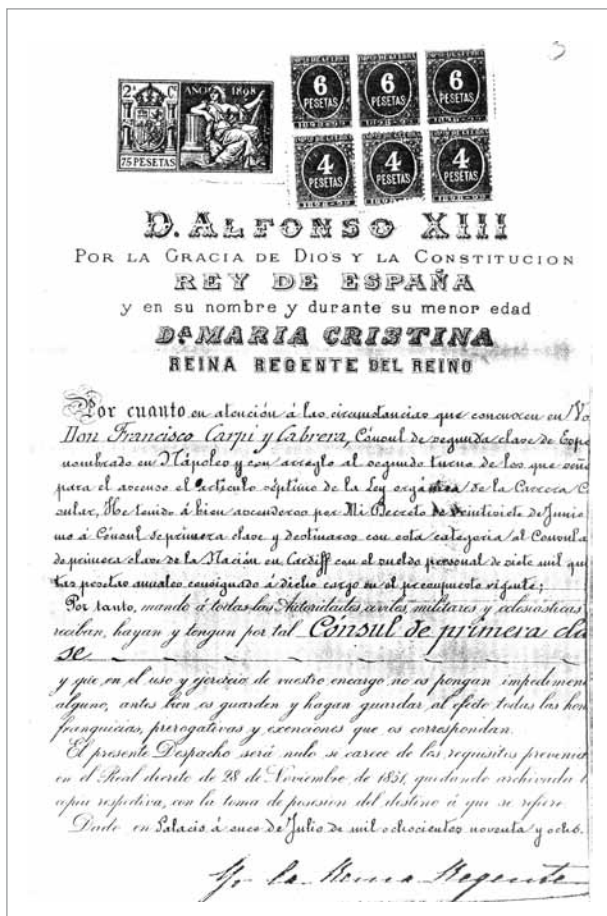 3
2ª Cª
AÑO 1898
75 PESETAS
6
PESETAS
1898-99
6
PESETAS
1898-99
6
PESETAS
1898-99
4
PESETAS
1898-99
4
PESETAS
1898-99
4
PESETAS
1898-99
D. ALFONSO XIII
POR LA GRACIA DE DIOS Y LA CONSTITUCION
REY DE ESPAÑA
y en su nombre y durante su menor edad
Dª MARIA CRISTINA
REINA REGENTE DEL REINO
Por cuanto en atención á las circunstancias que concurren en Vo
Don Francisco Carpi y Cabrera, Cónsul de segunda clase de Espa
nombrado en Nápoles y con arreglo al segundo turno de los que seña
para el ascenso el artículo séptimo de la Ley orgánica de la Carrera C
sular, He tenido á bien ascenderos por Mi Decreto de veintisiete de Junio
mo á Cónsul de primera clase y destinaros con esta categoria al Consula
de primera clase de la Nación en Cardiff con el sueldo personal de siete mil qui
tas pesetas anuales consignado á dicho cargo en el presupuesto vigente;
Por tanto, mando á todas las Autoridades civiles, militares y eclesiásticas
reciban, hayan y tengan por tal Cónsul de primera cla
se
y que en el uso y ejercicio de vuestro encargo no os pongan impedimen
alguno, antes bien os guarden y hagan guardar al efecto todas las hon
franquicias, prerogativas y exenciones que os correspondan.
El presente Despacho será nulo si carece de los requisitos prevenid
en el Real decreto de 28 de Noviembre de 1851, quedando archivada l
copia respectiva, con la toma de posesion del destino á que se refiere.
Dado en Palacio á once de Julio de mil ochocientos noventa y ocho.
Yo la Reina Regente